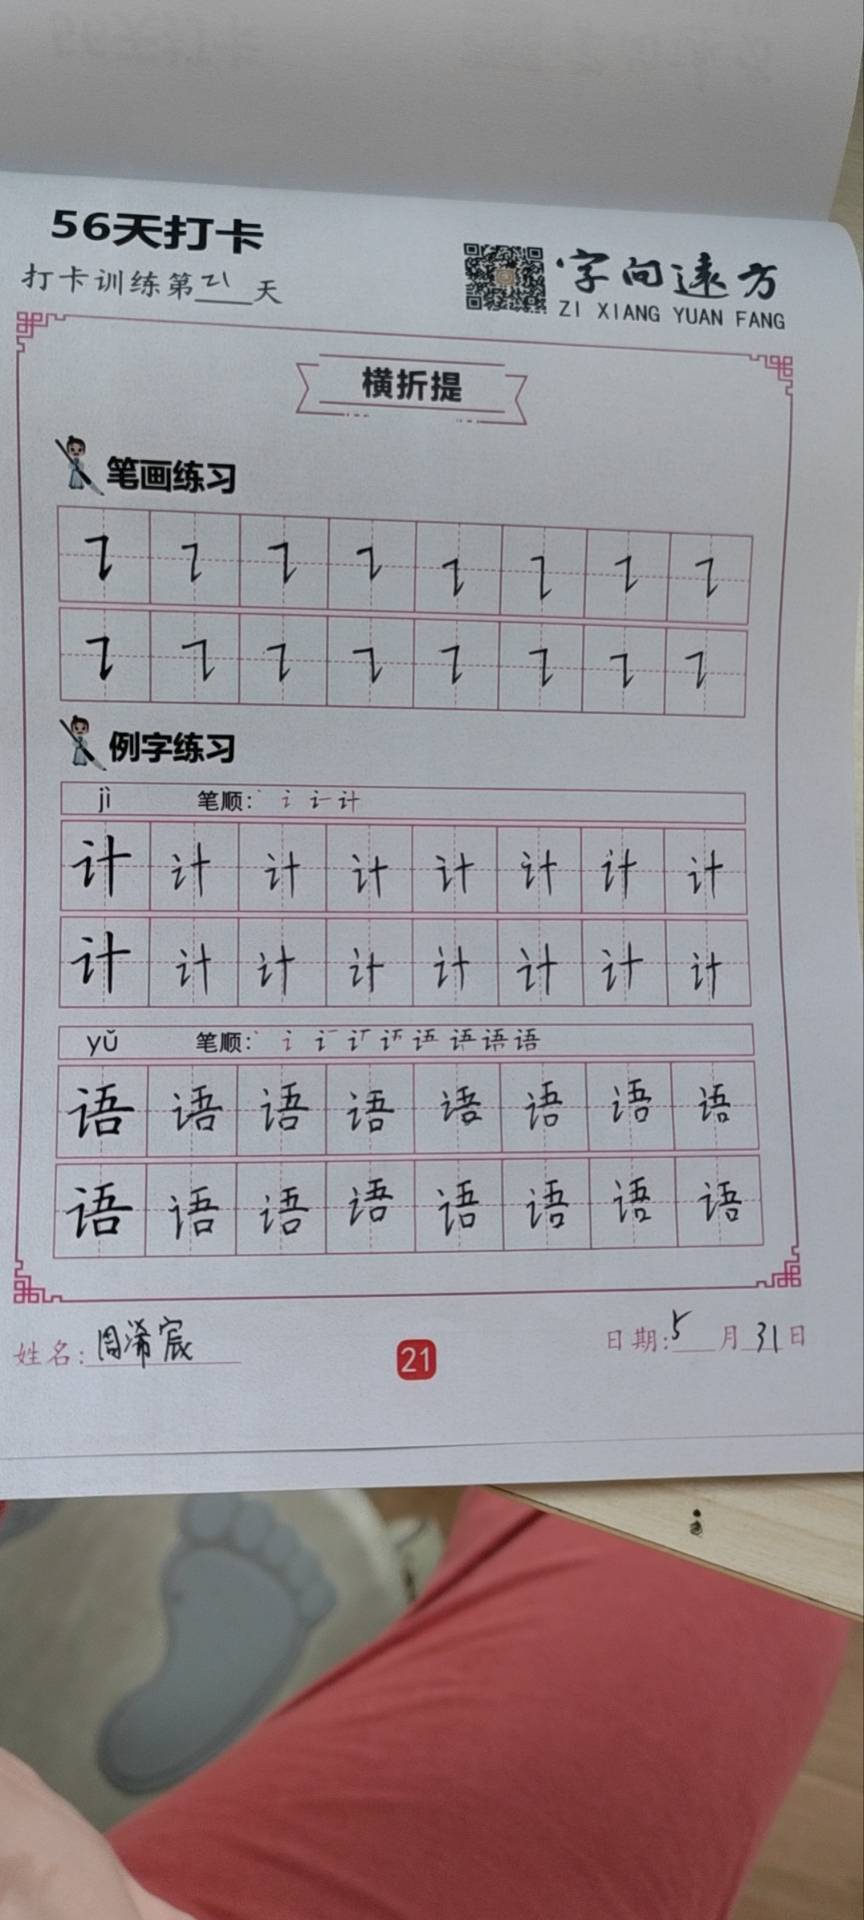 56天打卡
打卡训练第21天
字向远方
ZI XIANG YUAN FANG
横折提
笔画练习
㇊ ㇊ ㇊ ㇊ ㇊ ㇊ ㇊ ㇊
㇊ ㇊ ㇊ ㇊ ㇊ ㇊ ㇊ ㇊
例字练习
jì 笔顺: 丶 讠 计
计 计 计 计 计 计 计 计
计 计 计 计 计 计 计 计
yǔ 笔顺: 丶 讠 语
语 语 语 语 语 语 语 语
语 语 语 语 语 语 语 语
姓名: 周浠宸
21
日期: 5月31日